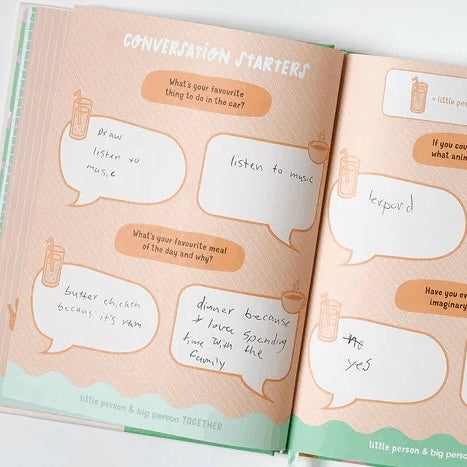 CONVERSATION STARTERS
What's your favourite
thing to do in the car?
Draw
listen to
music
listen to music
What's your favourite meal
of the day and why?
butter chicken
becans it's yum
dinner because
I love spending
time with the
family
little person & big person TOGETHER
= little pers
If you cou
what anim
lerpard
Have you eve
imaginary
yes
little person & big perso